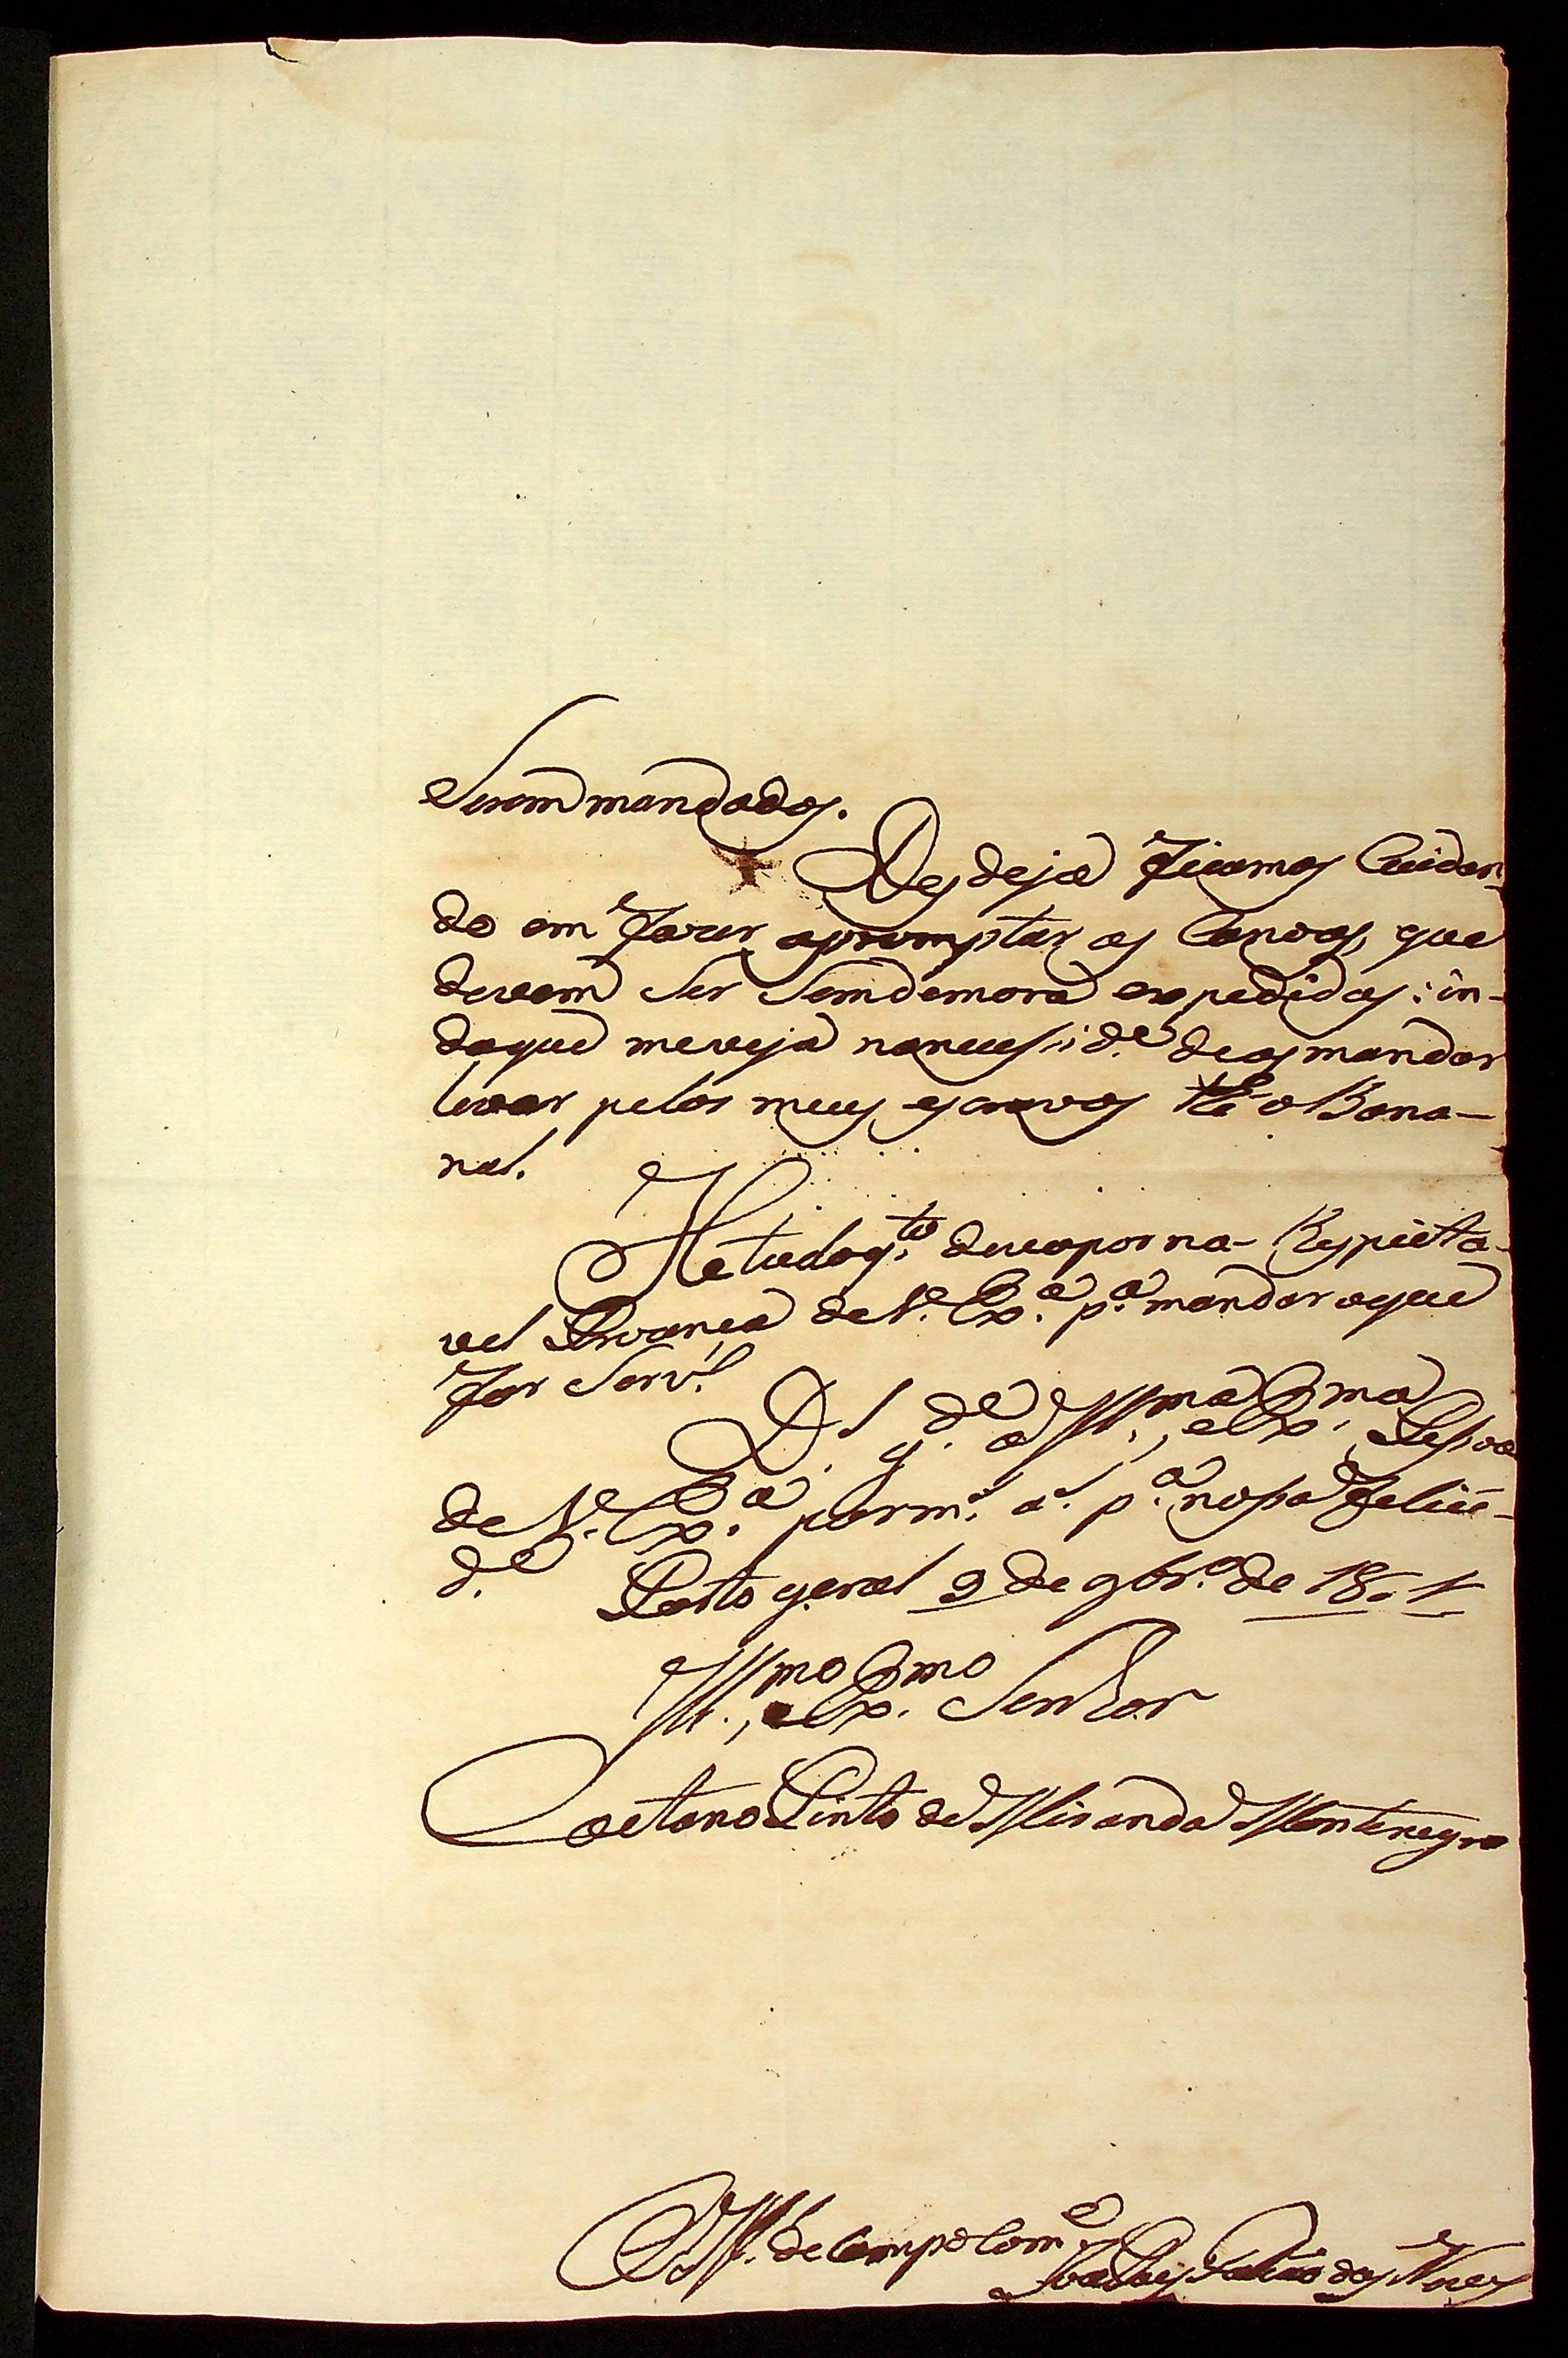 Serem mandados.
Desdeja ficamos Cuidan-
do em fazer apromptar as Canoas, que
devem Ser Semdemora expedidas: in-
daque meveja nanecessid.e deasmandar
levar pelos meus escravos té o Bana-
nal.
He tudo q.to devo por na Respeita-
vel Prezença de V. Ex.a p.a mandar oque
for Serv.
D.s g.de a Ill.ma, e Ex.ma Pessoa
de V. Ex.a por m.s a.s p.a nossa felici-
d.e
Porto geral 9 de 9br.o de 1801
Ill.mo, e Ex.mo Senhor
Caetano Pinto de Miranda Montenegro
de Campo Com.e
das Neves